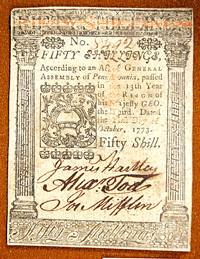 FIFTY SHILLINGS.
No.
FIFTY SHILLINGS,
According to an Act of GENERAL
ASSEMBLY of Pennsylvania, passed
in the 13th Year
of the REIGN of
his Majesty GEO.
the Third. Dated
the
October, 1773.
Fifty Shill.
James Hartley
Alex. Tod
Jon Mifflin